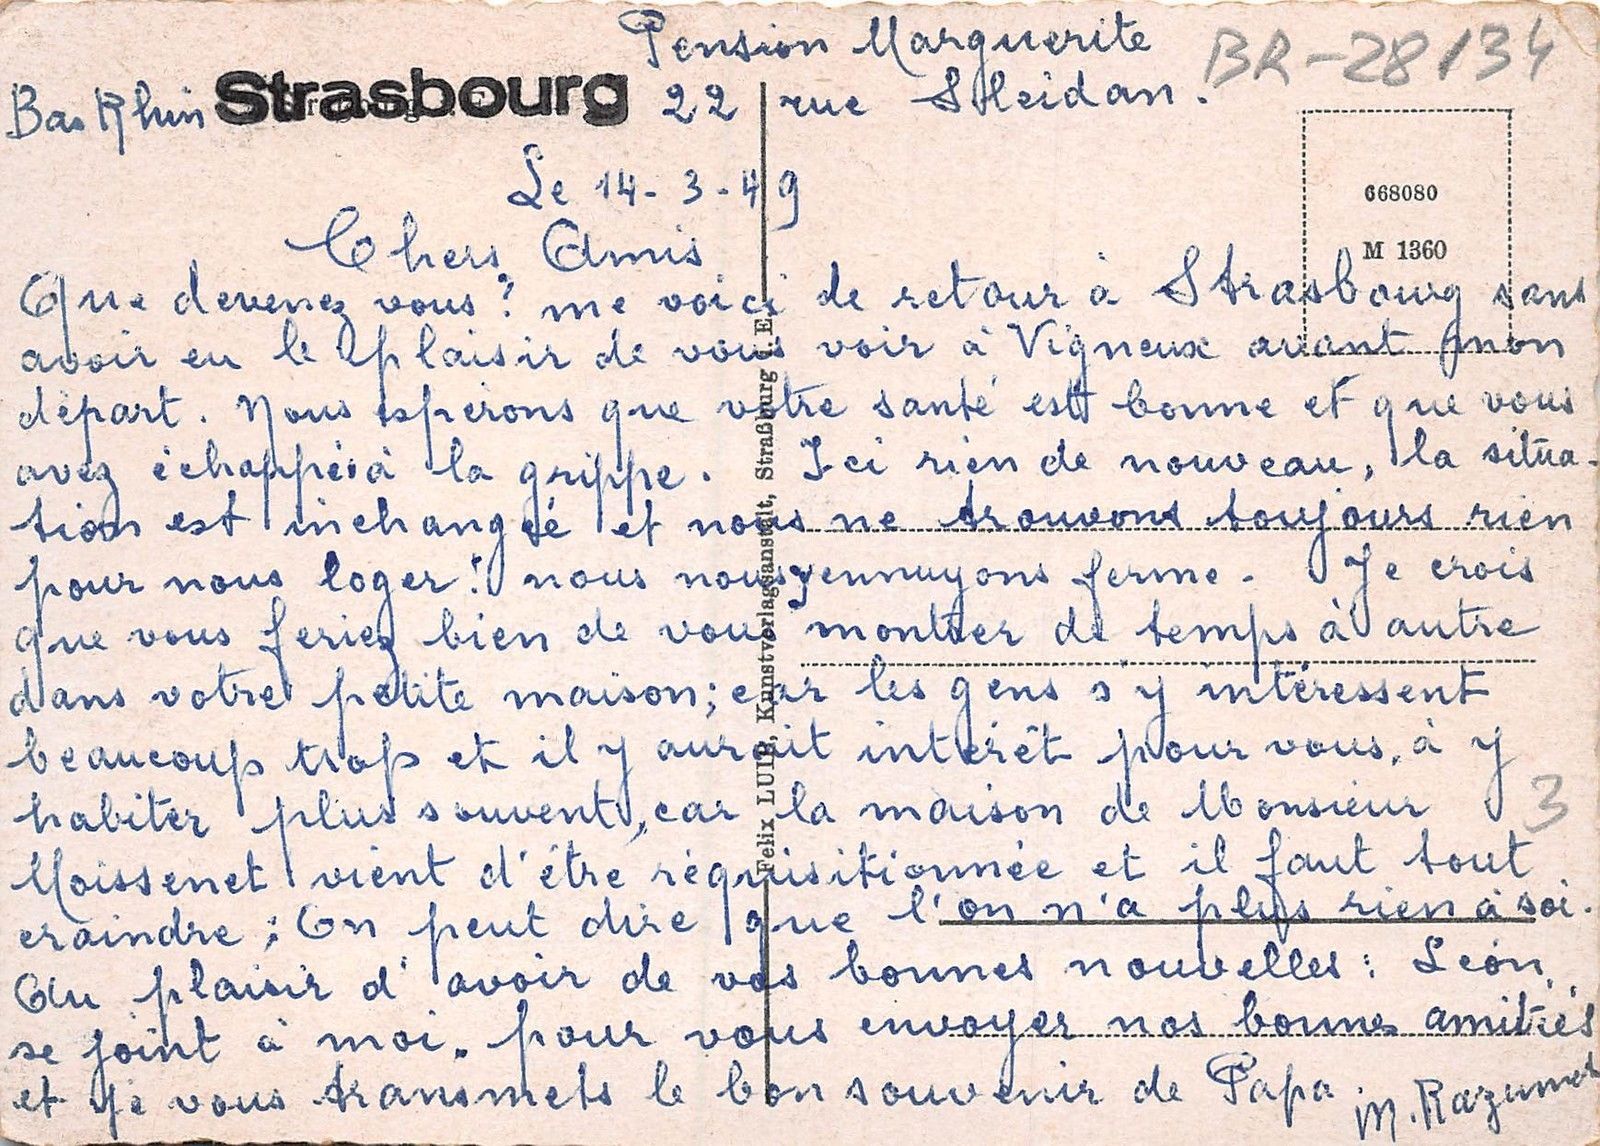 Pension Marguerite
BR-28134
Bas Rhin Strasbourg 22 rue Sleidan.
Le 14-3-49
668080
M 1360
Chers Amis
Que devenez vous? me voici de retour à Strasbourg sans
avoir eu le plaisir de vous voir à Vigneux avant mon
départ. Nous espérons que votre santé est bonne et que vous
avez échappé à la grippe. Ici rien de nouveau, la situa-
tion est inchangée et nous ne trouvons toujours rien
pour nous loger! nous nous y ennuyons ferme. Je crois
que vous feriez bien de vous montrer de temps à autre
dans votre petite maison; car les gens s'y intéressent
beaucoup trop et il y aurait intérêt pour vous, à y
habiter plus souvent, car la maison de Monsieur
3
Moissenet vient d'être réquisitionnée et il faut tout
craindre; On peut dire que l'on n'a plus rien à soi.
Au plaisir d'avoir de vos bonnes nouvelles: Léon,
se joint à moi. pour vous envoyer nos bonnes amitiés
et je vous transmets le bon souvenir de Papa.
M.
Felix LUIB, Kunstverlagsanstalt, Straßburg i. E.